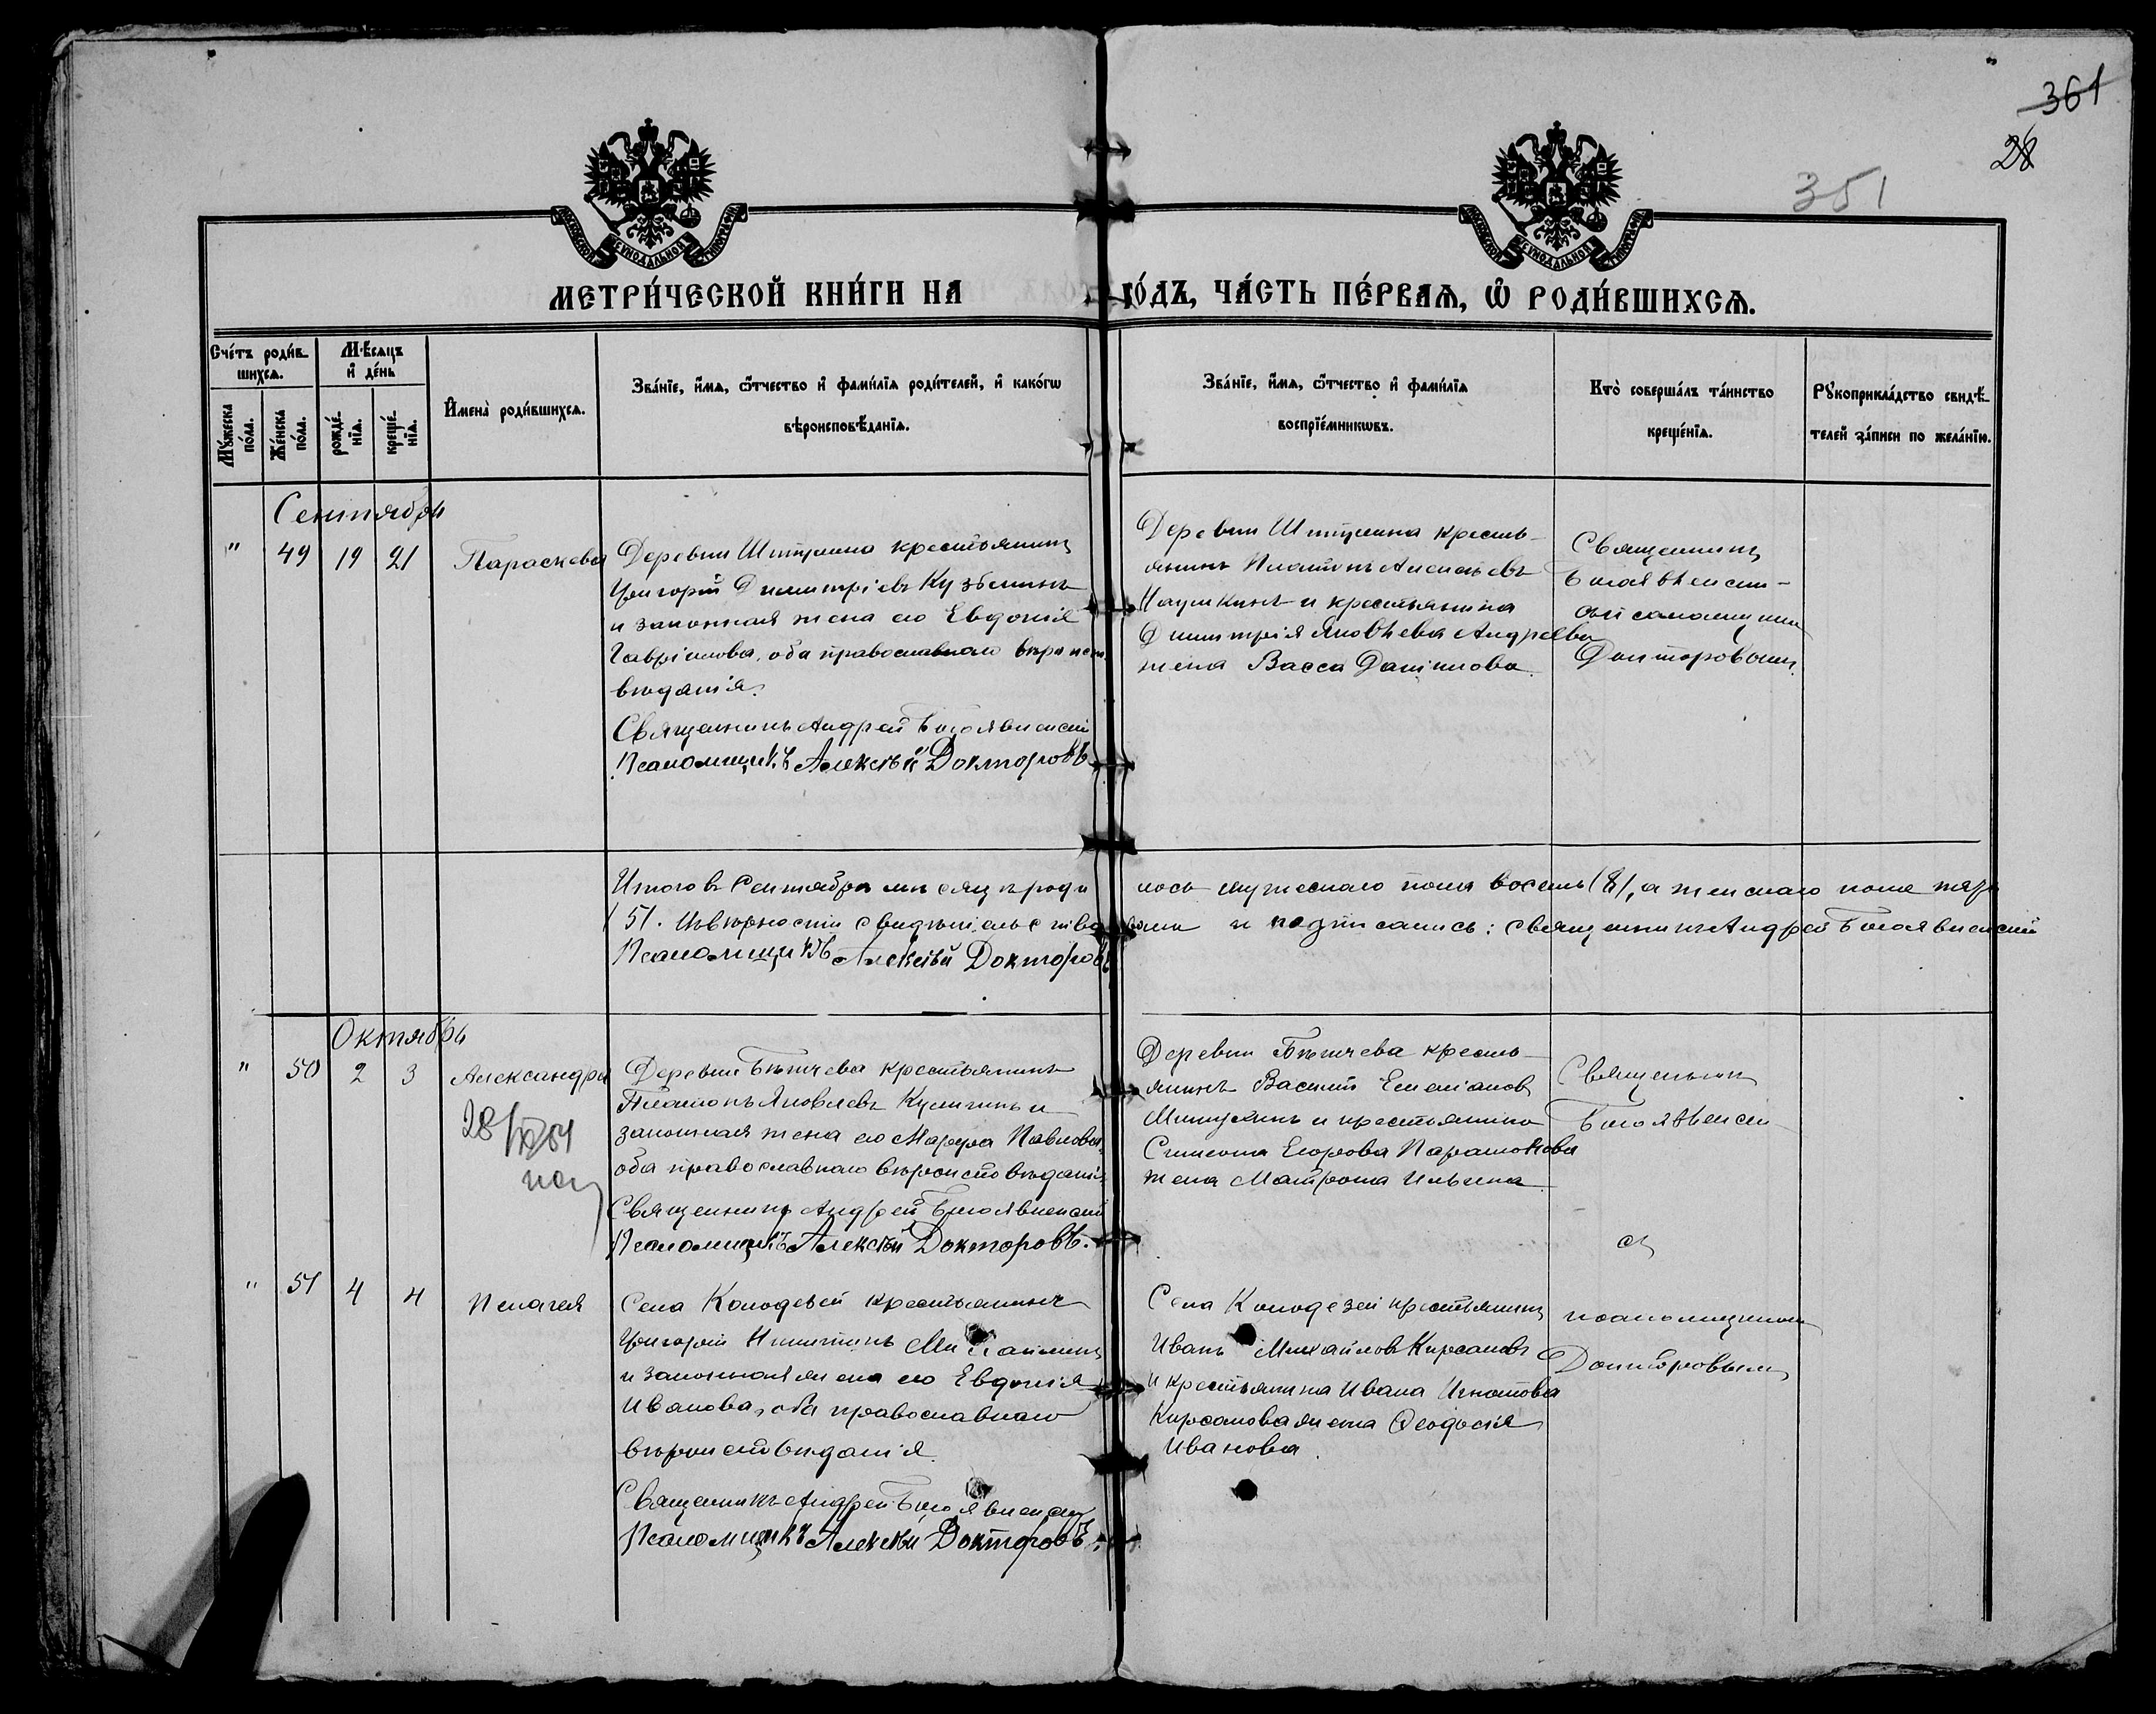 361
28
351
МОСКОВСКОЙ СѴНОДАЛЬНОЙ ТИПОГРАФІИ
МОСКОВСКОЙ СѴНОДАЛЬНОЙ ТИПОГРАФІИ
МЕТРИ́ЧЕСКОЙ КНИ́ГИ НА ГО́ДЪ, ЧА́СТЬ ПЕ́РВАѦ, Ѡ҆ РОДИ́ВШИХСѦ.
Счётъ роди́в-
шихсѧ.
Мꙋ́жеска по́ла.
Же́нска по́ла.
Мѣ́сѧцъ
и҆ де́нь
рожде́-
нїѧ.
креще́-
нїѧ.
И҆мена̀ роди́вшихсѧ.
Зва́нїе, и҆́мѧ, ѻ҆́тчество и҆ фами́лїѧ роди́телей, и҆ како́гѡ
вѣроисповѣ́данїѧ.
Зва́нїе, и҆́мѧ, ѻ҆́тчество и҆ фами́лїѧ
воспрїе́мникѡвъ.
Кто̀ соверша́лъ та́инство
креще́нїѧ.
Рꙋкоприкла́дство свидѣ́-
телей за́писи по жела́нїю.
Сентябрь
" 49 19 21 Параскева
Деревни крестьянинъ
Григорій Димитріевъ Кузьминъ
и законная жена его Евдокія
Гавріилова, оба православнаго вѣроиспо
вѣданія.
Священникъ Андрей Богоявленскій
Псаломщикъ Алексѣй Докторовъ
Деревни кресть-
янинъ Платонъ Алексѣевъ
и крестьянина
Димитрія Яковлева Андреева
жена Васса Даніилова.
Священникъ
Богоявленскій
съ псаломщик
Докторовымъ.
Итого въ Сентябрѣ мѣсяцѣ роди лось мужескаго пола восемь (8), а женскаго пола пять
(5). Въ вѣрности свидѣтельствовали и подписались: священникъ Андрей Богоявленскій
Псаломщикъ Алексѣй Докторовъ
Октябрь
" 50 2 3 Александра
28/
Деревни крестьянинъ
Платонъ Яковлевъ Куличинъ и
законная жена его Марѳа Павлова,
оба православнаго вѣроисповѣданія
Священникъ Андрей Богоявленскій
Псаломщикъ Алексѣй Докторовъ.
Деревни кресть-
янинъ Василій Емеліановъ
и крестьянина
Симеона Егорова Парамонова
жена Матрона Ильина.
Священникъ
Богоявленскій
съ
" 51 4 4 Пелагея
Села Колодезей крестьянинъ
Григорій Никитинъ Михайлинъ
и законная жена его Евдокія
Иванова, оба православнаго
вѣроисповѣданія.
Священникъ Андрей Богоявленскій
Псаломщикъ Алексѣй Докторовъ.
Села Колодезей крестьянинъ
Иванъ Михайловъ Кирсановъ
и крестьянина Ивана Игнатова
Кирсанова жена Ѳеодосія
Иванова.
псаломщикомъ
Докторовымъ